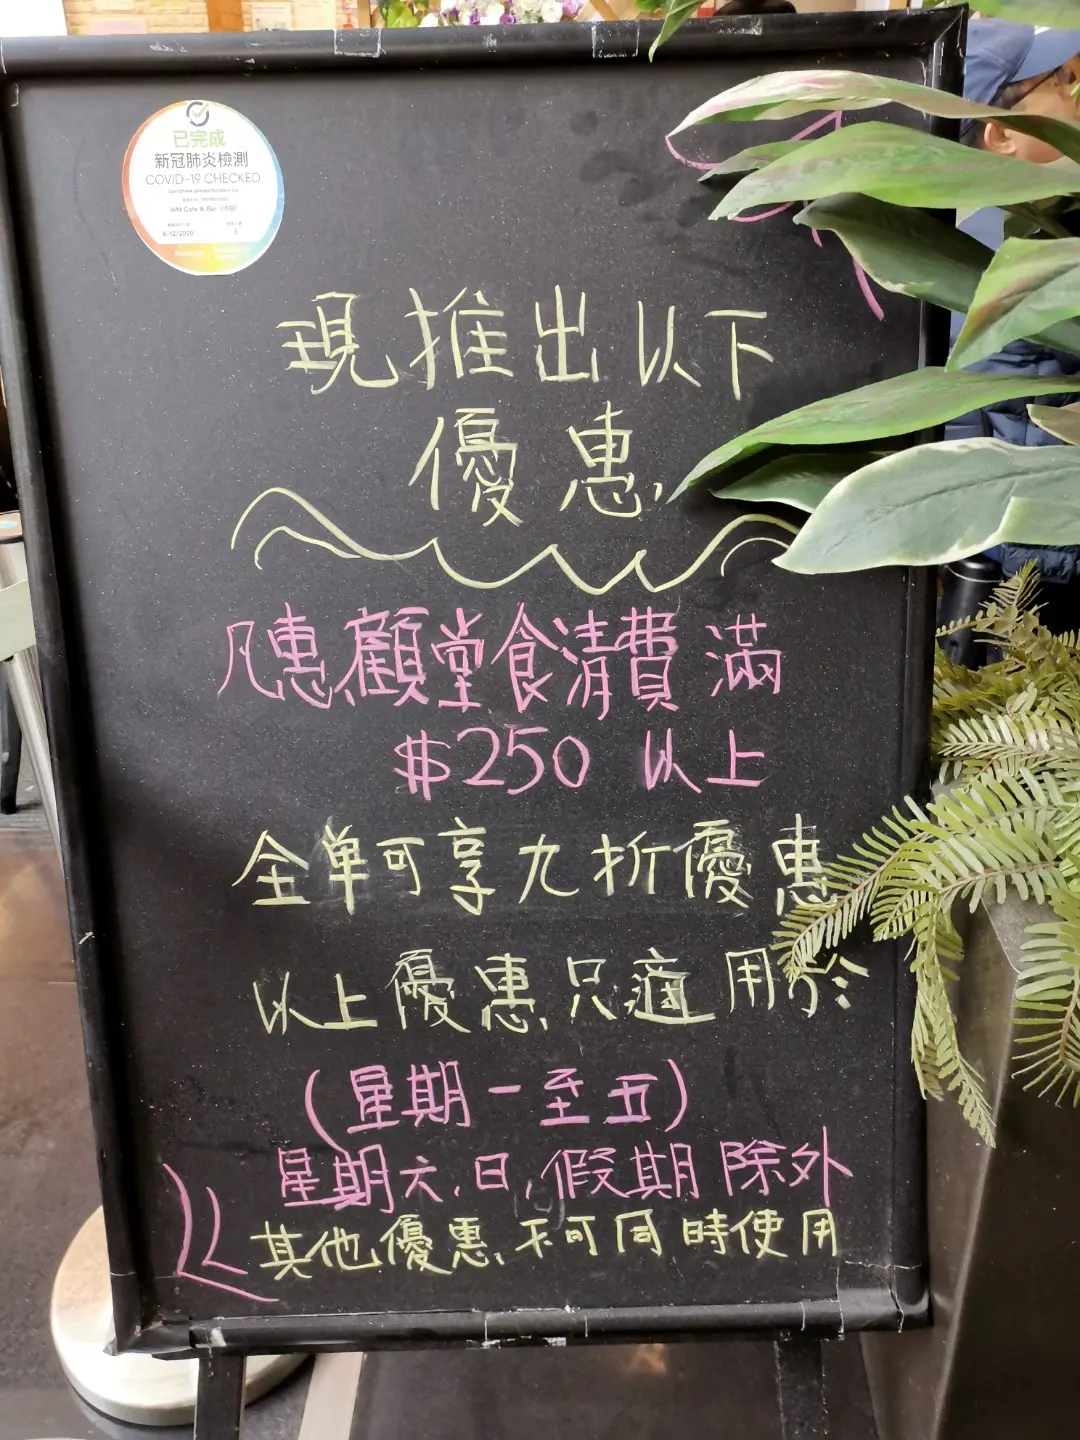 已完成
新冠肺炎檢測
COVID-19 CHECKED
WM Cafe & Bar
8/12/2020
3
現推出以下
優惠,
凡惠顧堂食清費滿
$250 以上
全单可享九折優惠
以上優惠,只適用於:
(星期一至五)
星期六,日,假期除外
其他優惠,不可同時使用